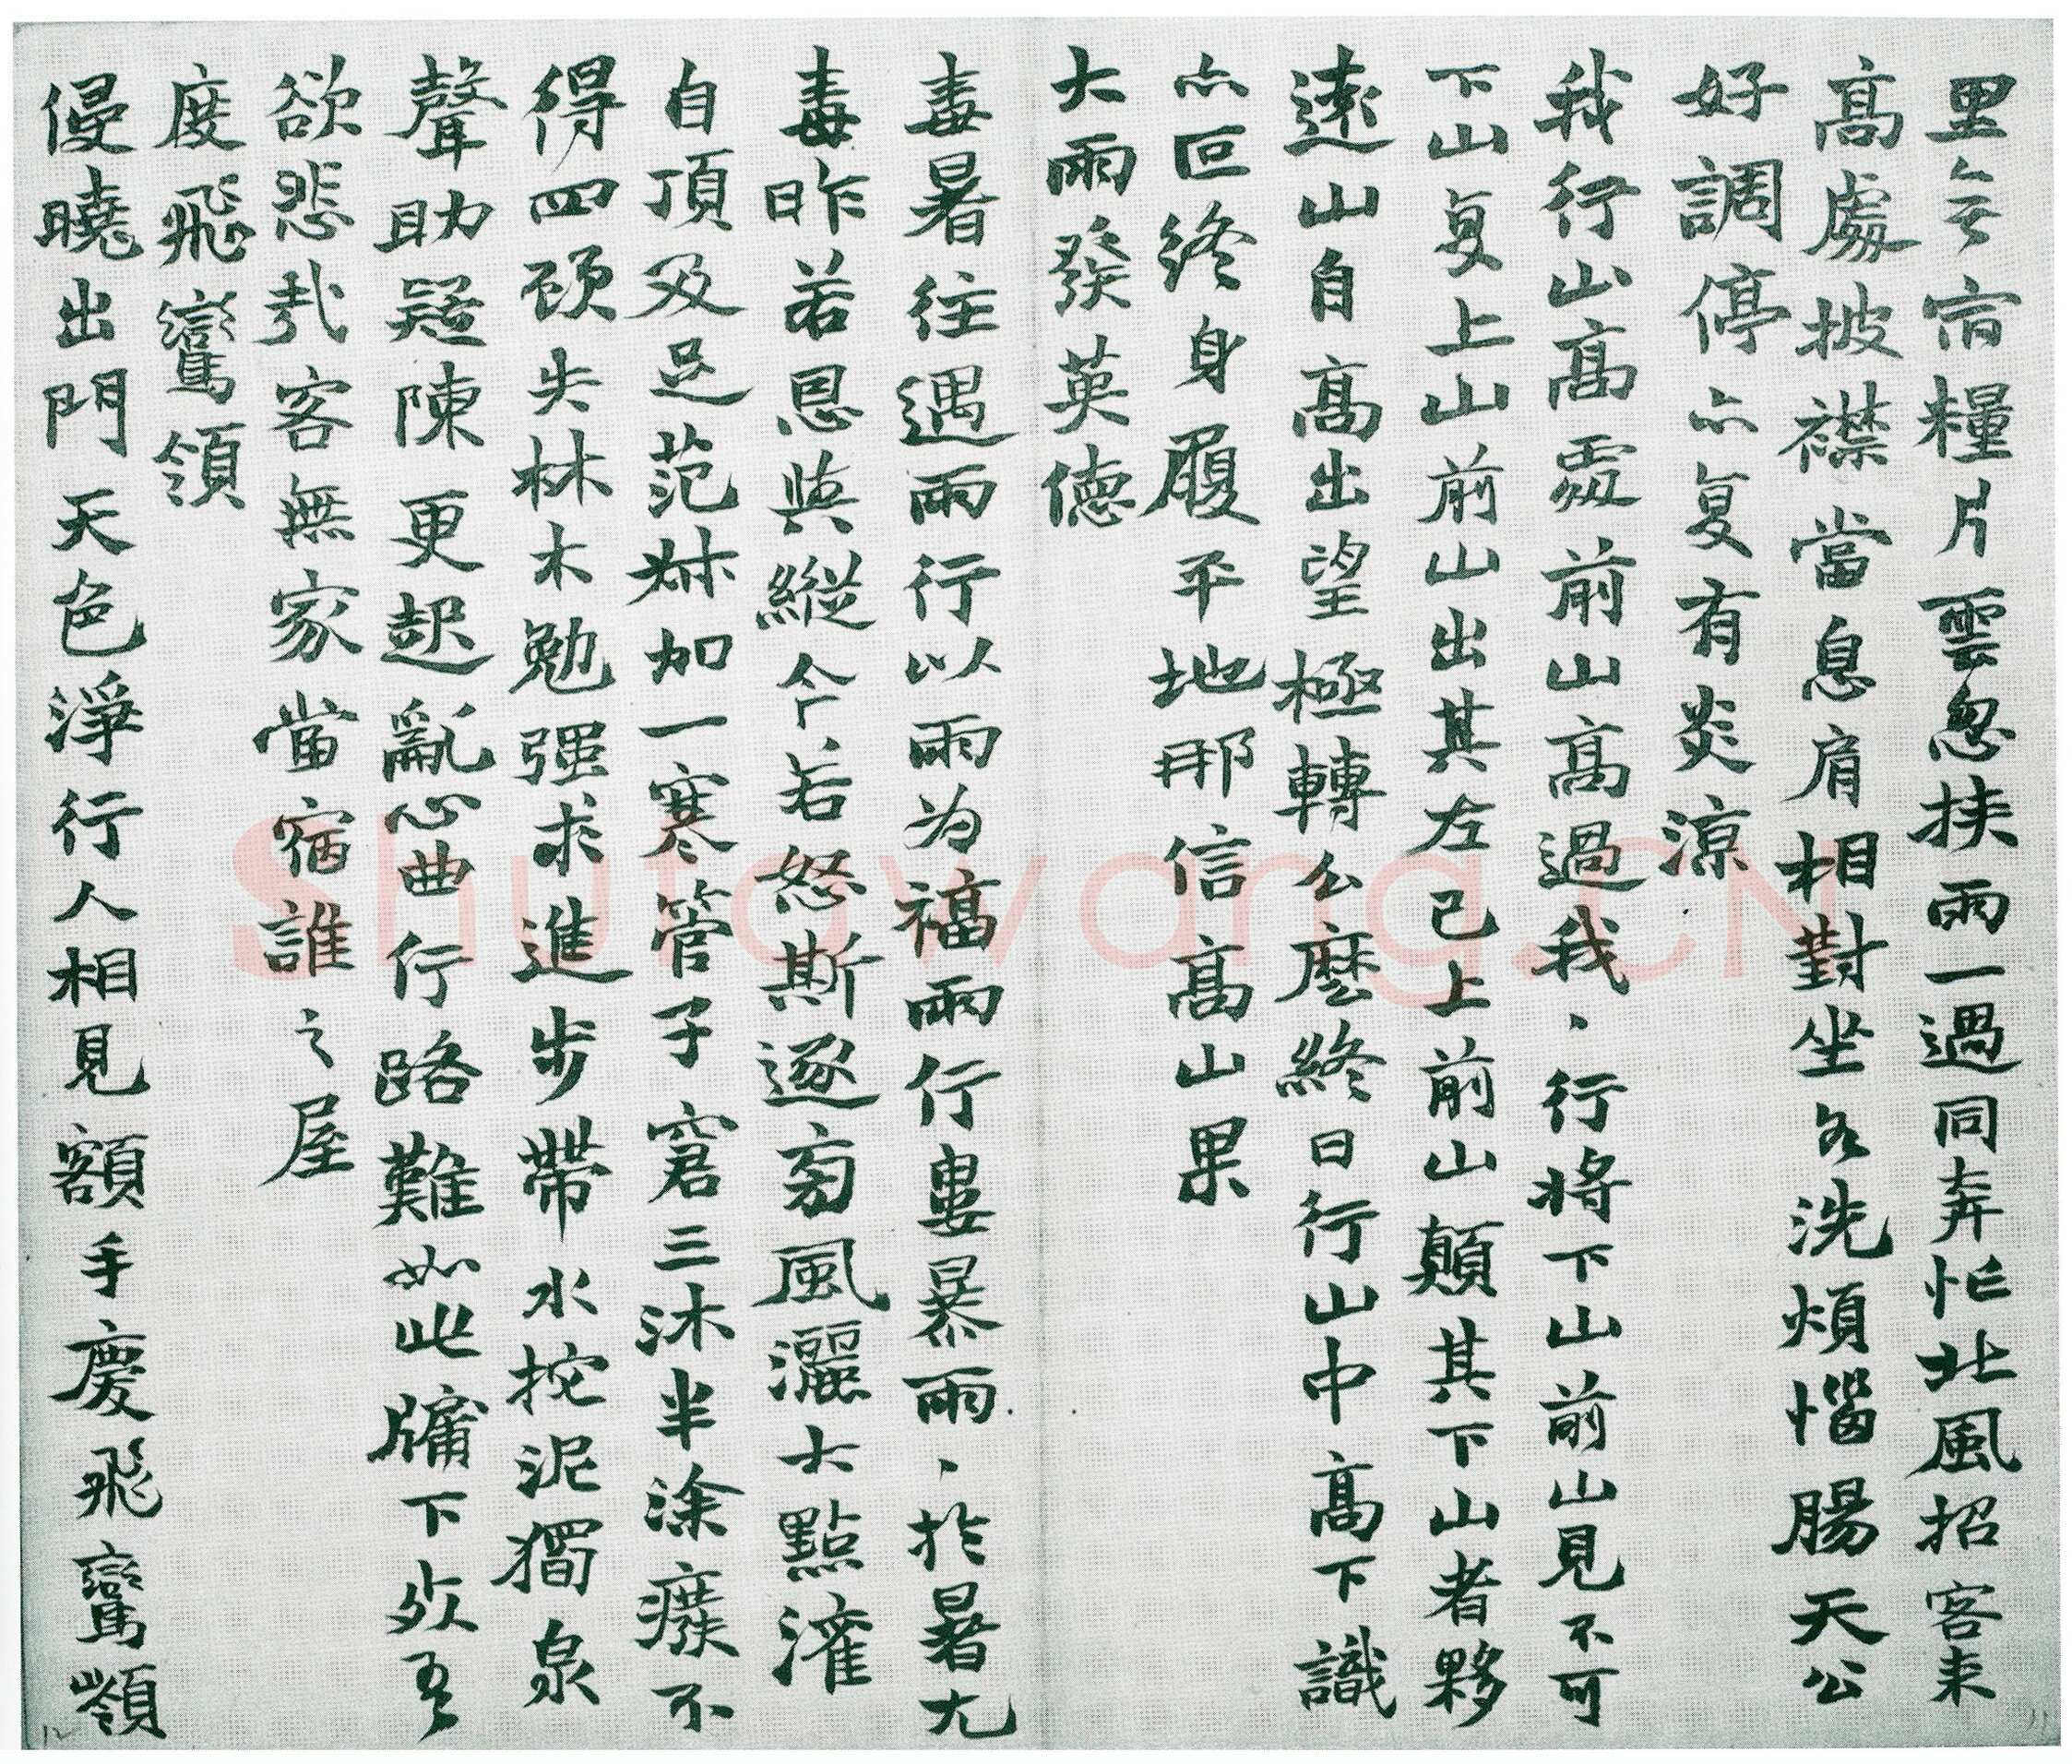 里無宿糧片雲忽挾雨一過同奔忙北風招客来
高處披襟當息肩相對坐各洗煩惱腸天公
好調停亦复有炎涼
我行山高處前山高過我、行將下山前山見不可
下山复上山前山出其左已上前山顛其下山者夥
遠山自高出望極轉么麼終日行山中高下識
亦叵終身履平地那信高山果
大雨發英德
毒暑往遇雨行以雨为福雨行婁暴雨、於暑尤
毒昨若恩與縱今若怒斯逐匆風灑大點漼
自頂及足范烌加一寒管子窘三沐半涂癈不
得四顾失林木勉强求進步帶水挖泥獨泉
聲助疑陳更起亂心曲行路難如此牖下必吾
欲悲哉客無家當宿誰之屋
度飛鸞領
侵曉出門天色淨行人相見額手慶飛鸞嶺
12
11
Shufawang.CN